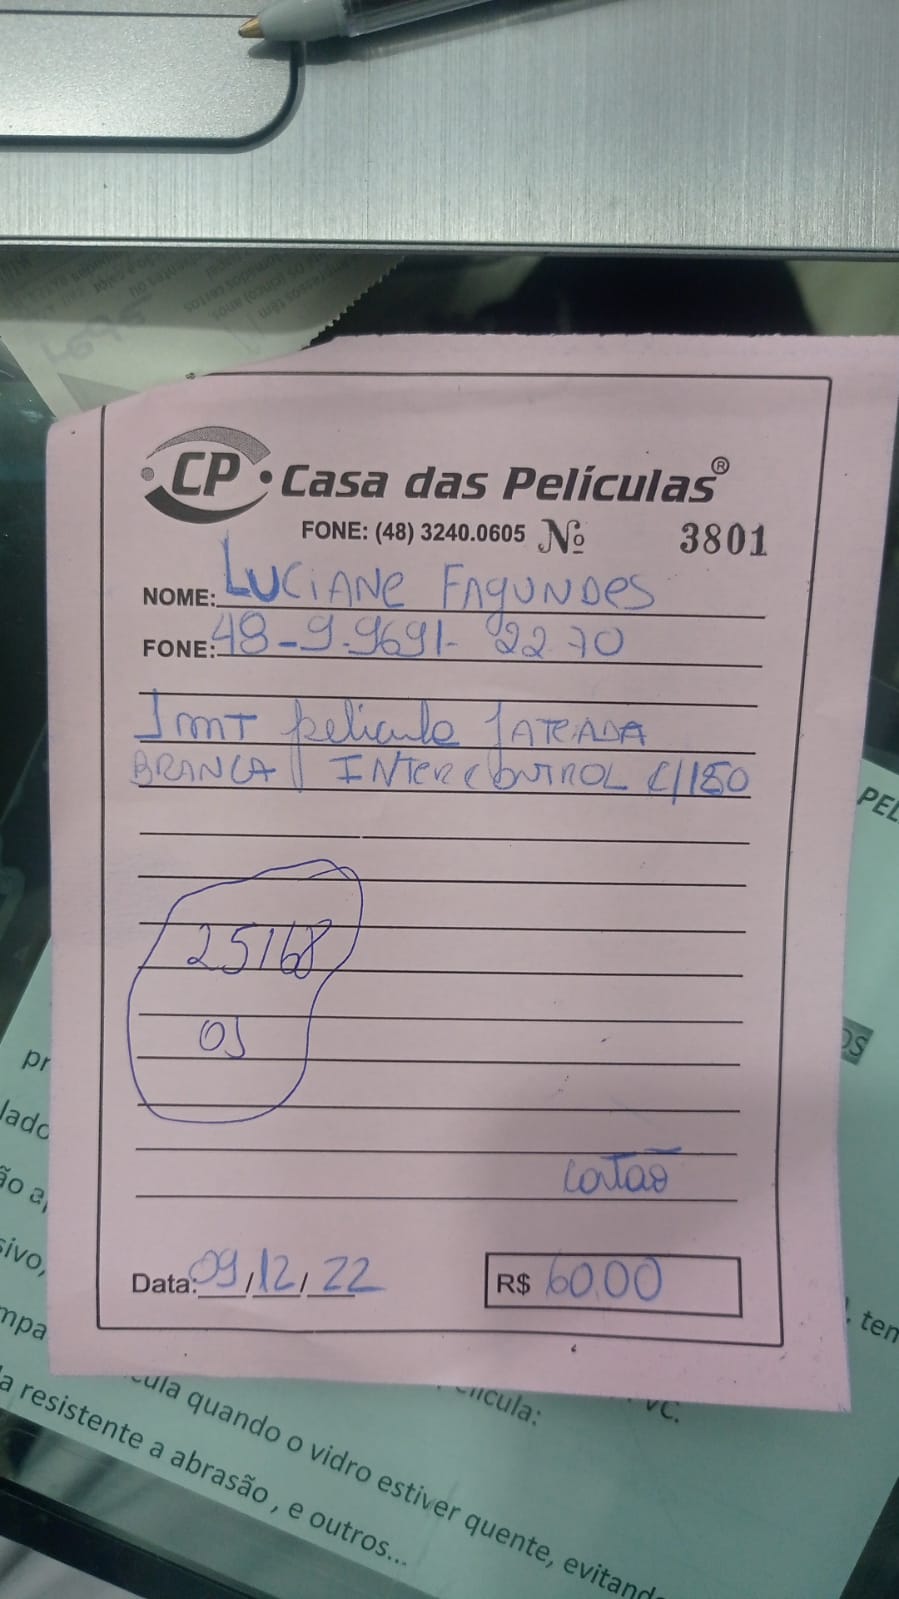 CP Casa das Películas®
FONE: (48) 3240.0605 Nº 3801
NOME: LUCIANE FAGUNDES
FONE: 48-9-9691-2270
1mT película JATEADA
BRANCA INTERCONTROL C/1,50
25168
OS
cartão
Data: 09/12/22 R$ 60,00
PEL
OS
pr
lado
ão a
sivo,
mpa
. tem
elícula: VC.
cula quando o vidro estiver quente, evitand
a resistente a abrasão , e outros...